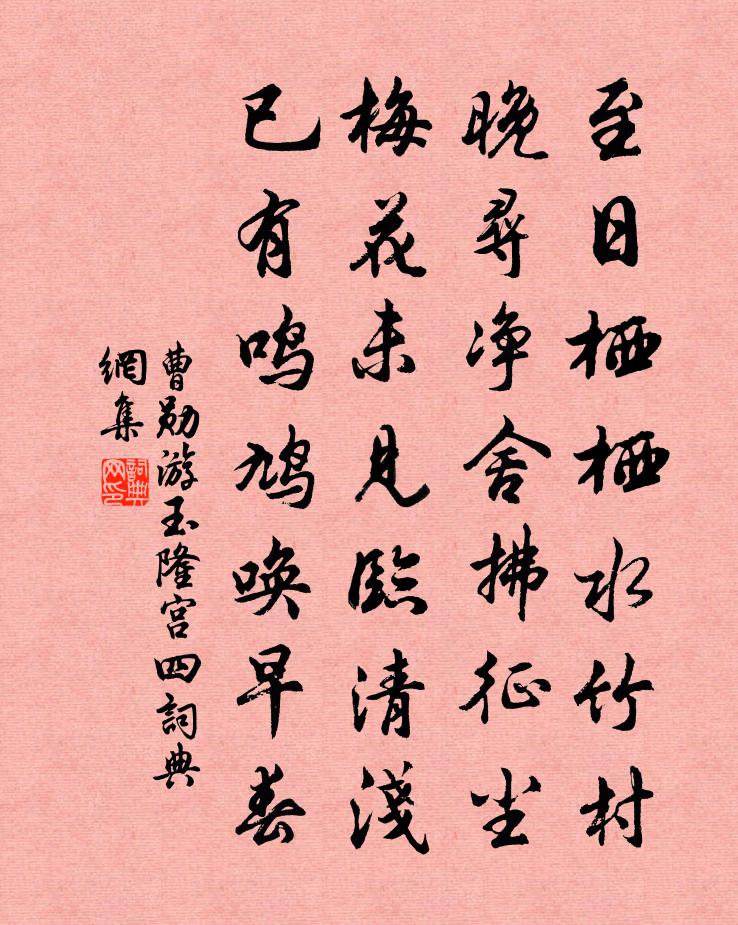 至日栖栖水竹村
晚尋净舍拂征尘
梅花未見臨清淺
已有鸣鸠唤早春
曹勋游玉隆宫四詞典
網集
詞典網印